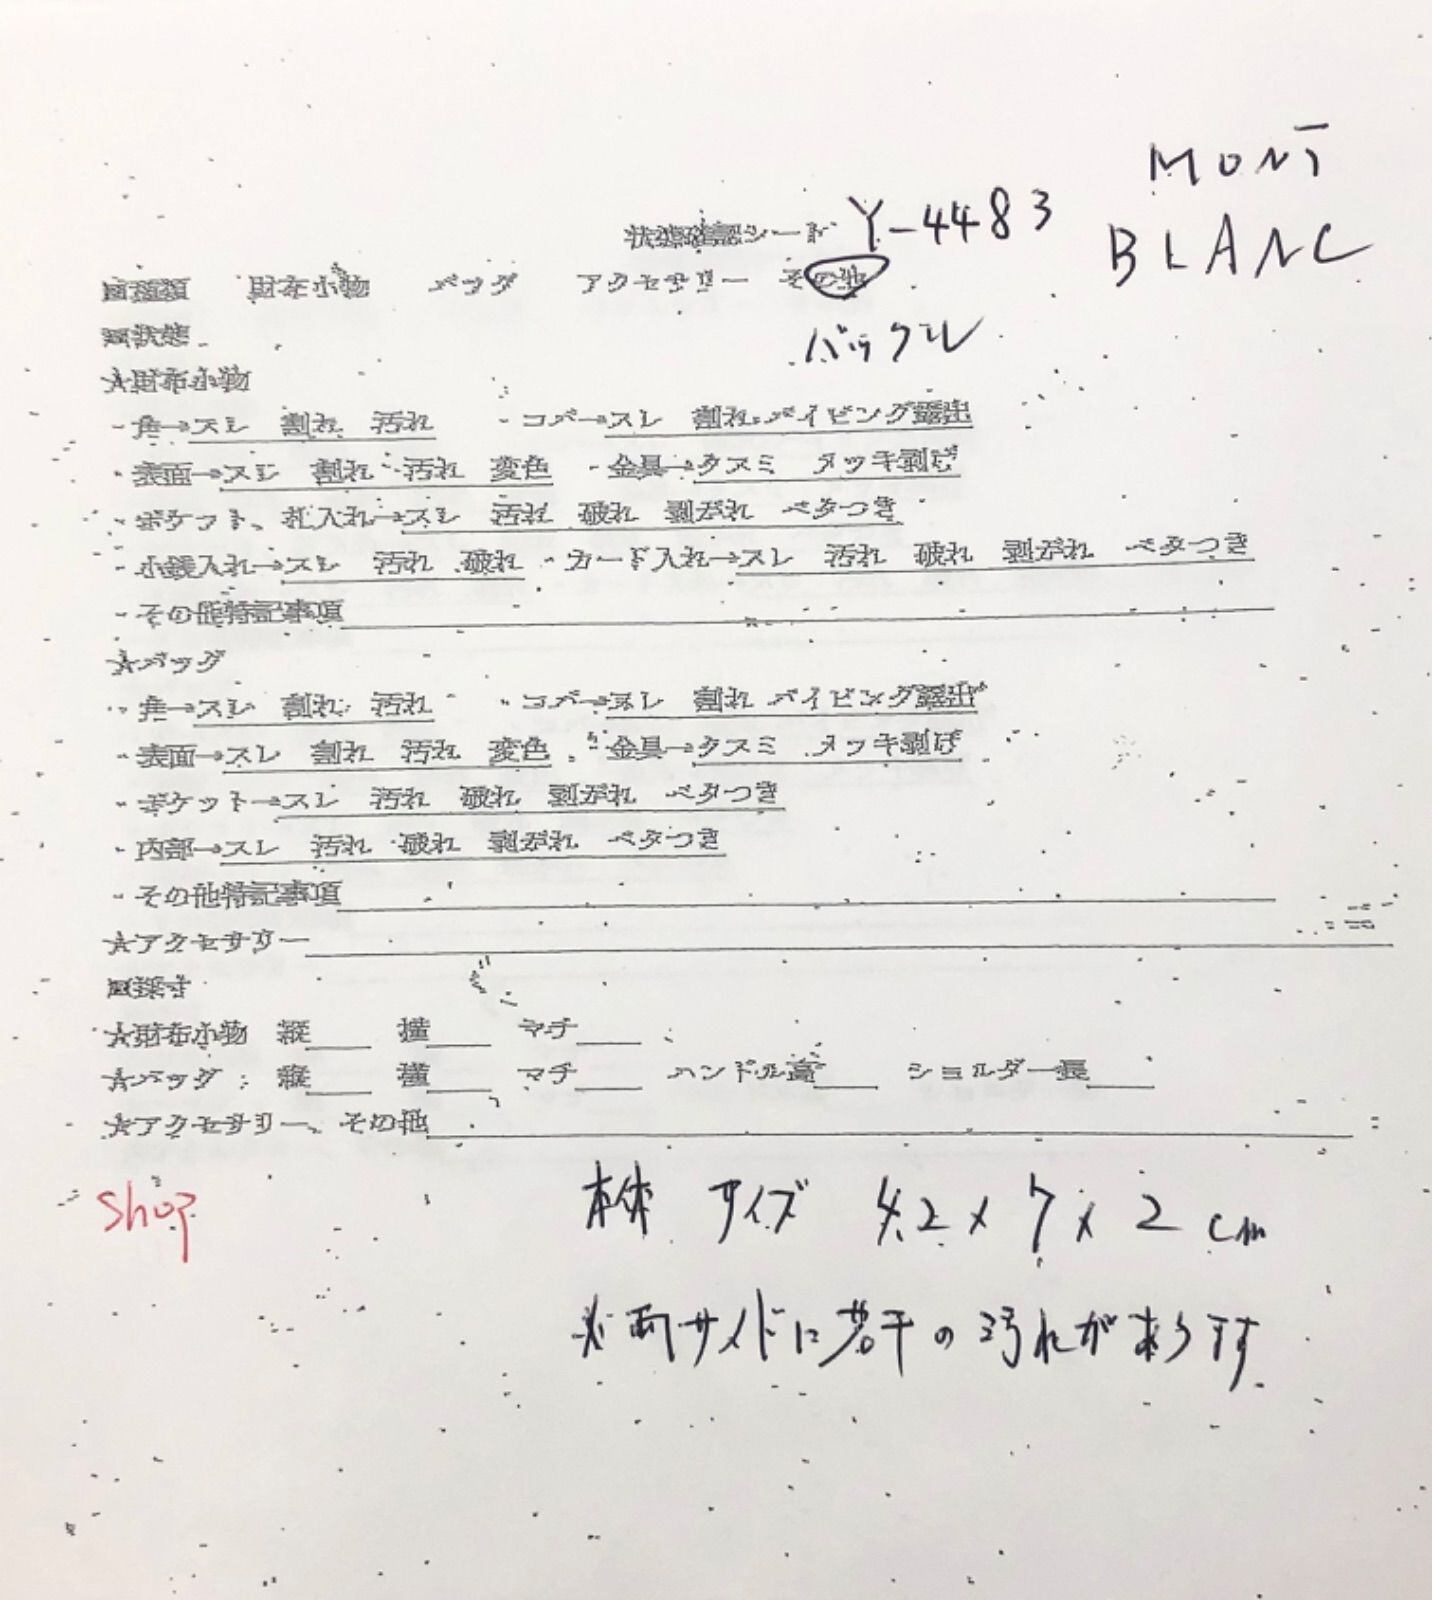 MONT
BLANC
状態確認シート Y-4483
■種類 財布小物 バッグ アクセサリー その他
バックル
■状態
★財布小物
・角→スレ 割れ 汚れ ・コバ→スレ 割れ パイピング露出
・表面→スレ 割れ 汚れ 変色 ・金具→クスミ メッキ剥げ
・ポケット、札入れ→スレ 汚れ 破れ 剥がれ ベタつき
・小銭入れ→スレ 汚れ 破れ ・カード入れ→スレ 汚れ 破れ 剥がれ ベタつき
・その他特記事項
★バッグ
・角→スレ 割れ 汚れ ・コバ→スレ 割れ パイピング露出
・表面→スレ 割れ 汚れ 変色 ・金具→クスミ メッキ剥げ
・ポケット→スレ 汚れ 破れ 剥がれ ベタつき
・内部→スレ 汚れ 破れ 剥がれ ベタつき
・その他特記事項
★アクセサリー
■採寸
★財布小物 縦 横 マチ
★バッグ 縦 横 マチ ハンドル高 ショルダー長
★アクセサリー、その他
shop
本体 サイズ 4.2 x 7 x 2 cm
※両サイドに若干の汚れがあります